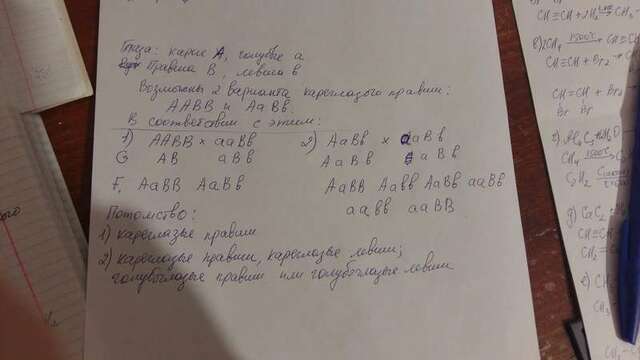 Глаза: карие А, голубые а
Правша В, левша в
Возможны 2 варианта кареглазого правши:
ААВВ и АаВв.
В соответствии с этим:
1) ААВВ × ааВв 2) АаВв × ааВв
G АВ аВв АаВв аВв
F₁ АаВВ АаВв АаВВ Аавв АаВв ааВв
аавв ааВВ
Потомство:
1) Кареглазые правши
2) Кареглазые правши, кареглазые левши;
голубоглазые правши или голубоглазые левши
CH≡CH + 2H₂
в) 2CH₄ 1500°C
CH≡CH + Br₂
CH = CH + Br₂
Br Br
CH₄ 1500°C
C₂H₂
д) CaC₂
CH≡
е)